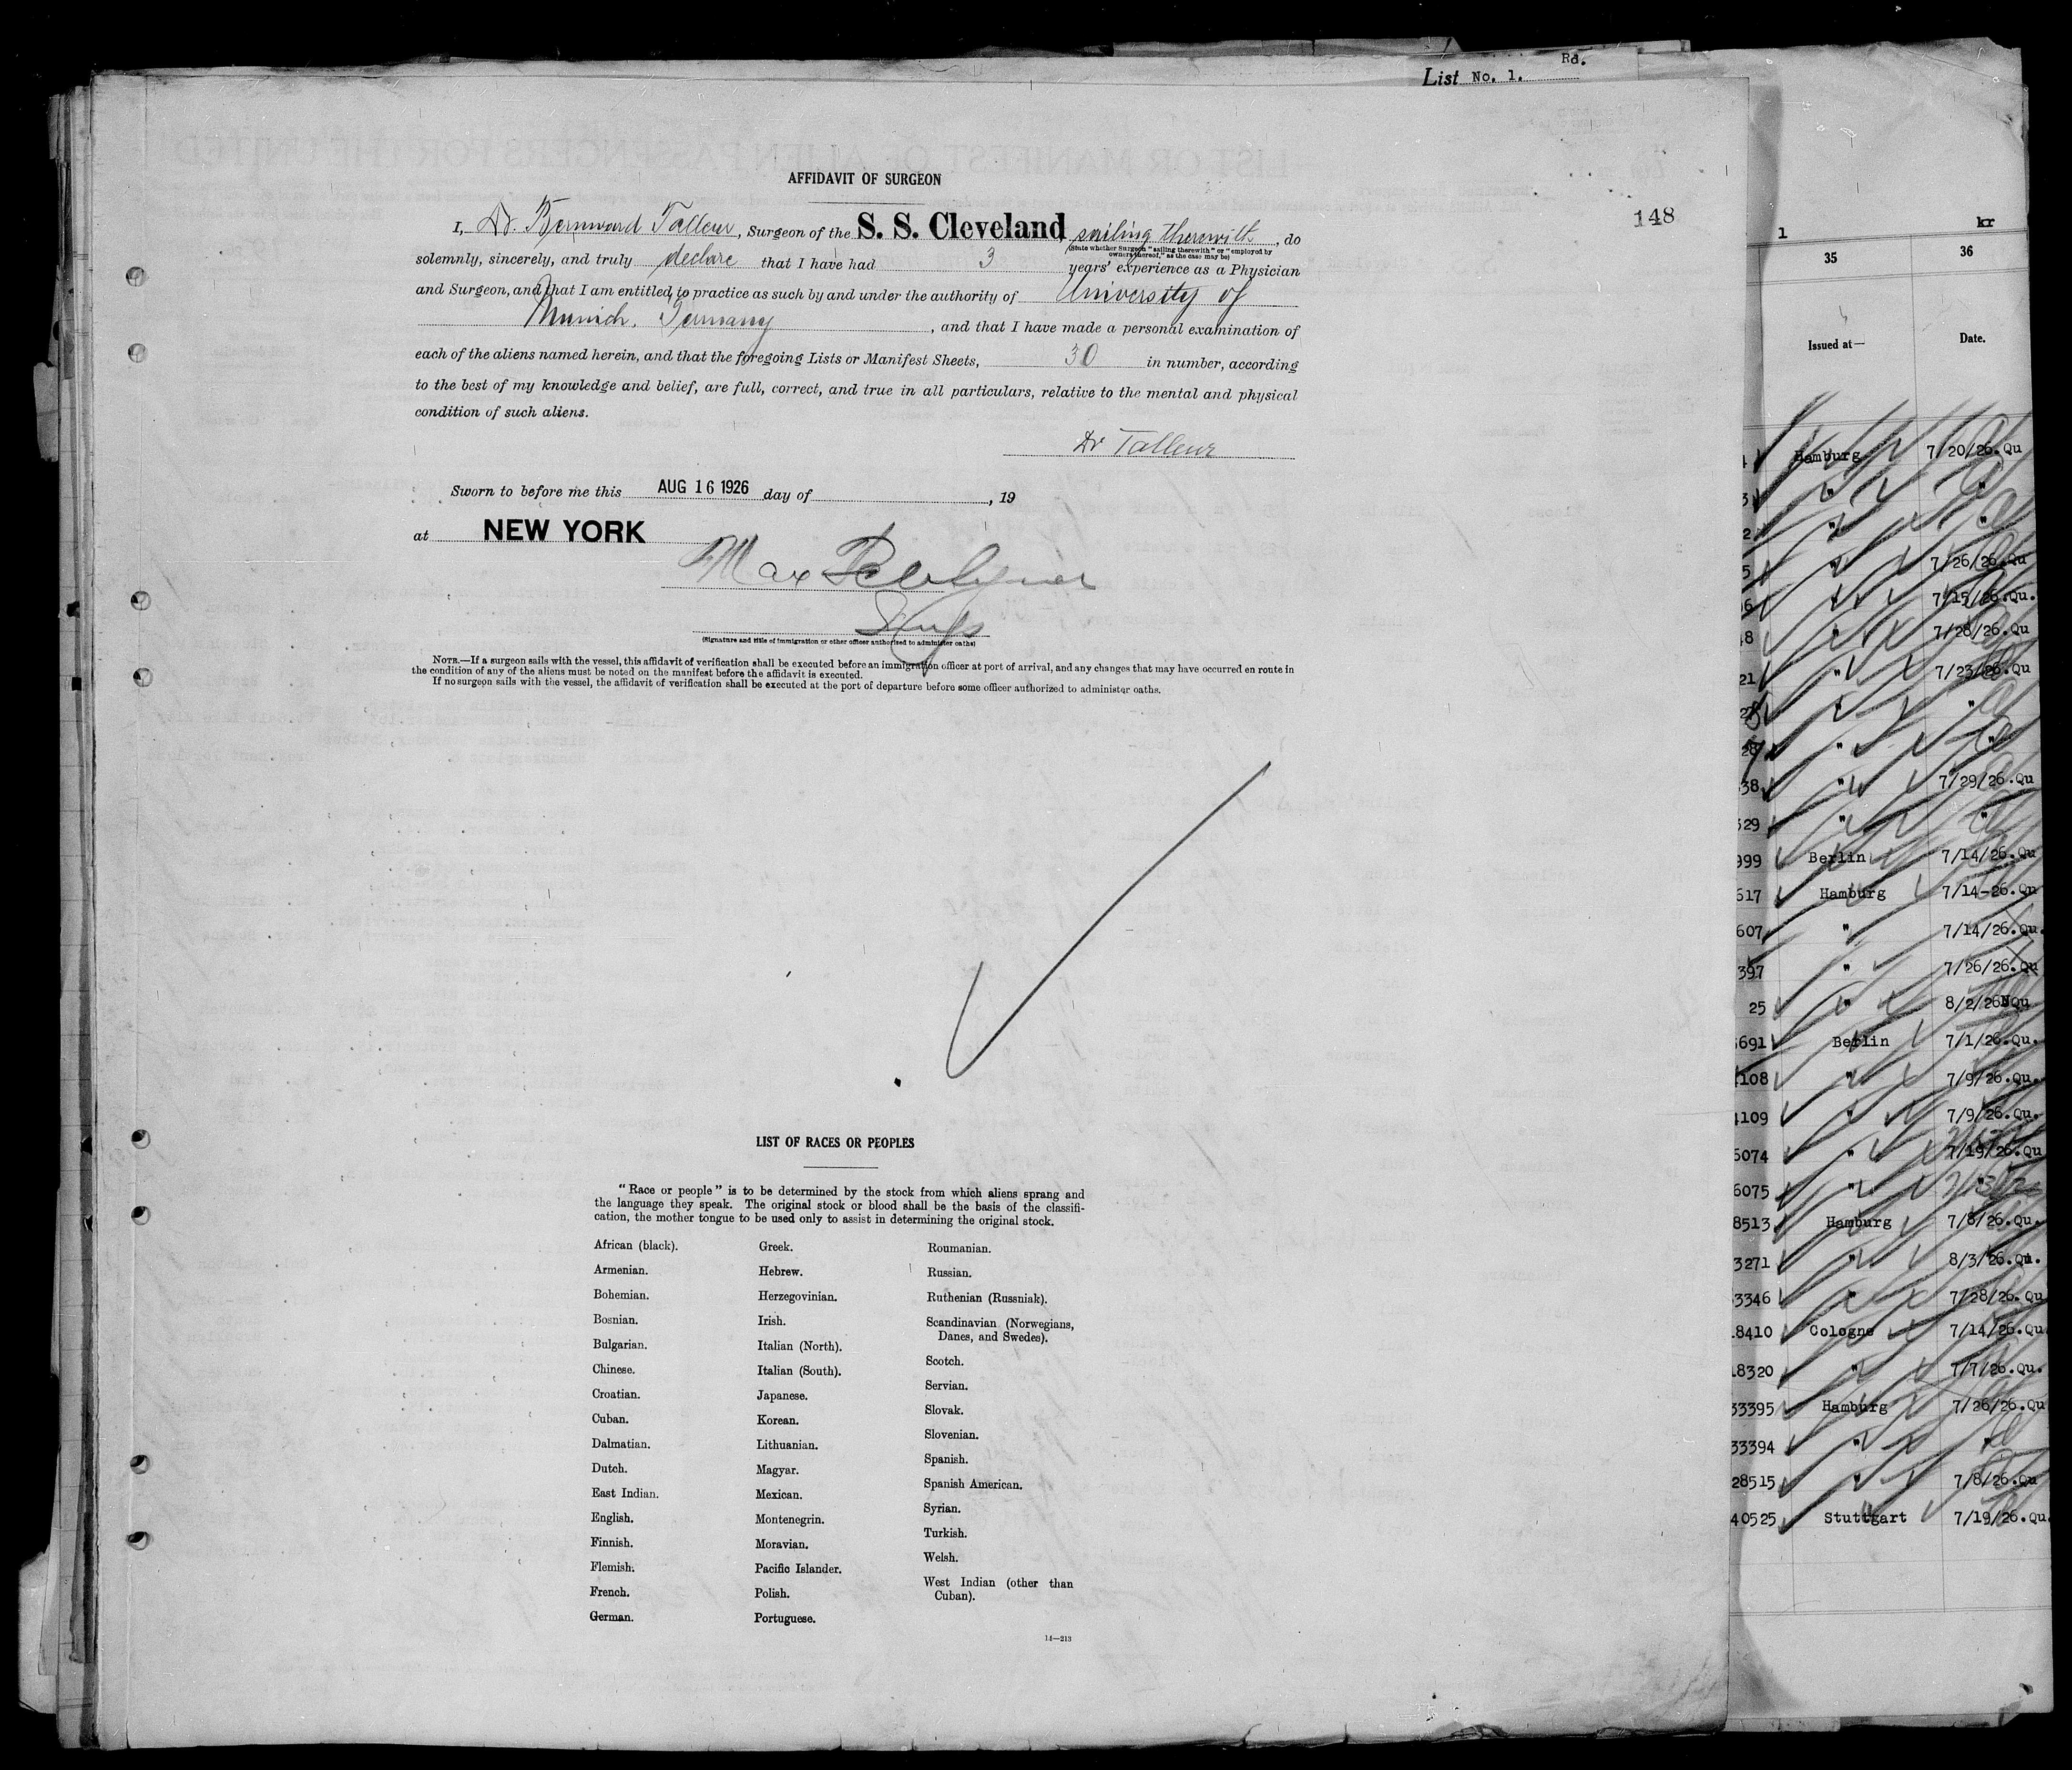 List No. 1.
Rd.
AFFIDAVIT OF SURGEON
148
I, Dr. Bernward Talleur, Surgeon of the S. S. Cleveland sailing therewith, do
(State whether Surgeon "sailing therewith" or "employed by
owners thereof," as the case may be)
solemnly, sincerely, and truly declare that I have had 3 years' experience as a Physician
and Surgeon, and that I am entitled to practice as such by and under the authority of University of
Munich, Germany, and that I have made a personal examination of
each of the aliens named herein, and that the foregoing Lists or Manifest Sheets, 30 in number, according
to the best of my knowledge and belief, are full, correct, and true in all particulars, relative to the mental and physical
condition of such aliens.
Dr Talleur
Sworn to before me this AUG 16 1926 day of , 19
at NEW YORK
Max
(Signature and title of immigration or other officer authorized to administer oaths)
NOTE.—If a surgeon sails with the vessel, this affidavit of verification shall be executed before an immigration officer at port of arrival, and any changes that may have occurred en route in
the condition of any of the aliens must be noted on the manifest before the affidavit is executed.
If no surgeon sails with the vessel, the affidavit of verification shall be executed at the port of departure before some officer authorized to administer oaths.
LIST OF RACES OR PEOPLES
"Race or people" is to be determined by the stock from which aliens sprang and
the language they speak. The original stock or blood shall be the basis of the classifi-
cation, the mother tongue to be used only to assist in determining the original stock.
African (black).
Armenian.
Bohemian.
Bosnian.
Bulgarian.
Chinese.
Croatian.
Cuban.
Dalmatian.
Dutch.
East Indian.
English.
Finnish.
Flemish.
French.
German.
Greek.
Hebrew.
Herzegovinian.
Irish.
Italian (North).
Italian (South).
Japanese.
Korean.
Lithuanian.
Magyar.
Mexican.
Montenegrin.
Moravian.
Pacific Islander.
Polish.
Portuguese.
Roumanian.
Russian.
Ruthenian (Russniak).
Scandinavian (Norwegians,
Danes, and Swedes).
Scotch.
Servian.
Slovak.
Slovenian.
Spanish.
Spanish American.
Syrian.
Turkish.
Welsh.
West Indian (other than
Cuban).
14—213
1 kr
35 36
Issued at— Date.
Hamburg 7/20/26.Qu
" "
" "
" 7/26/26.Qu
" 7/15/26.Qu.
" 7/28/26.Qu
21 " 7/23/26.Qu
" "
28 " "
38 " 7/29/26.Qu
529 " "
999 Berlin 7/14/26.Qu
617 Hamburg 7/14-26.Qu
607 " 7/14/26.Qu.
397 " 7/26/26.Qu
25 " 8/2/26NQu
691 Berlin 7/1/26.Qu.
108 " 7/9/26.Qu.
4109 " 7/9/26.Qu.
6074 " 7/19/26.Qu
6075 " "
8513 Hamburg 7/8/26.Qu.
3271 " 8/3/26.Qu.
3346 " 7/28/26.Qu
8410 Cologne 7/14/26.Qu
18320 " 7/7/26.Qu.
33395 Hamburg 7/26/26.Qu
33394 " "
28515 " 7/8/26.Qu
40525 Stuttgart 7/19/26.Qu.